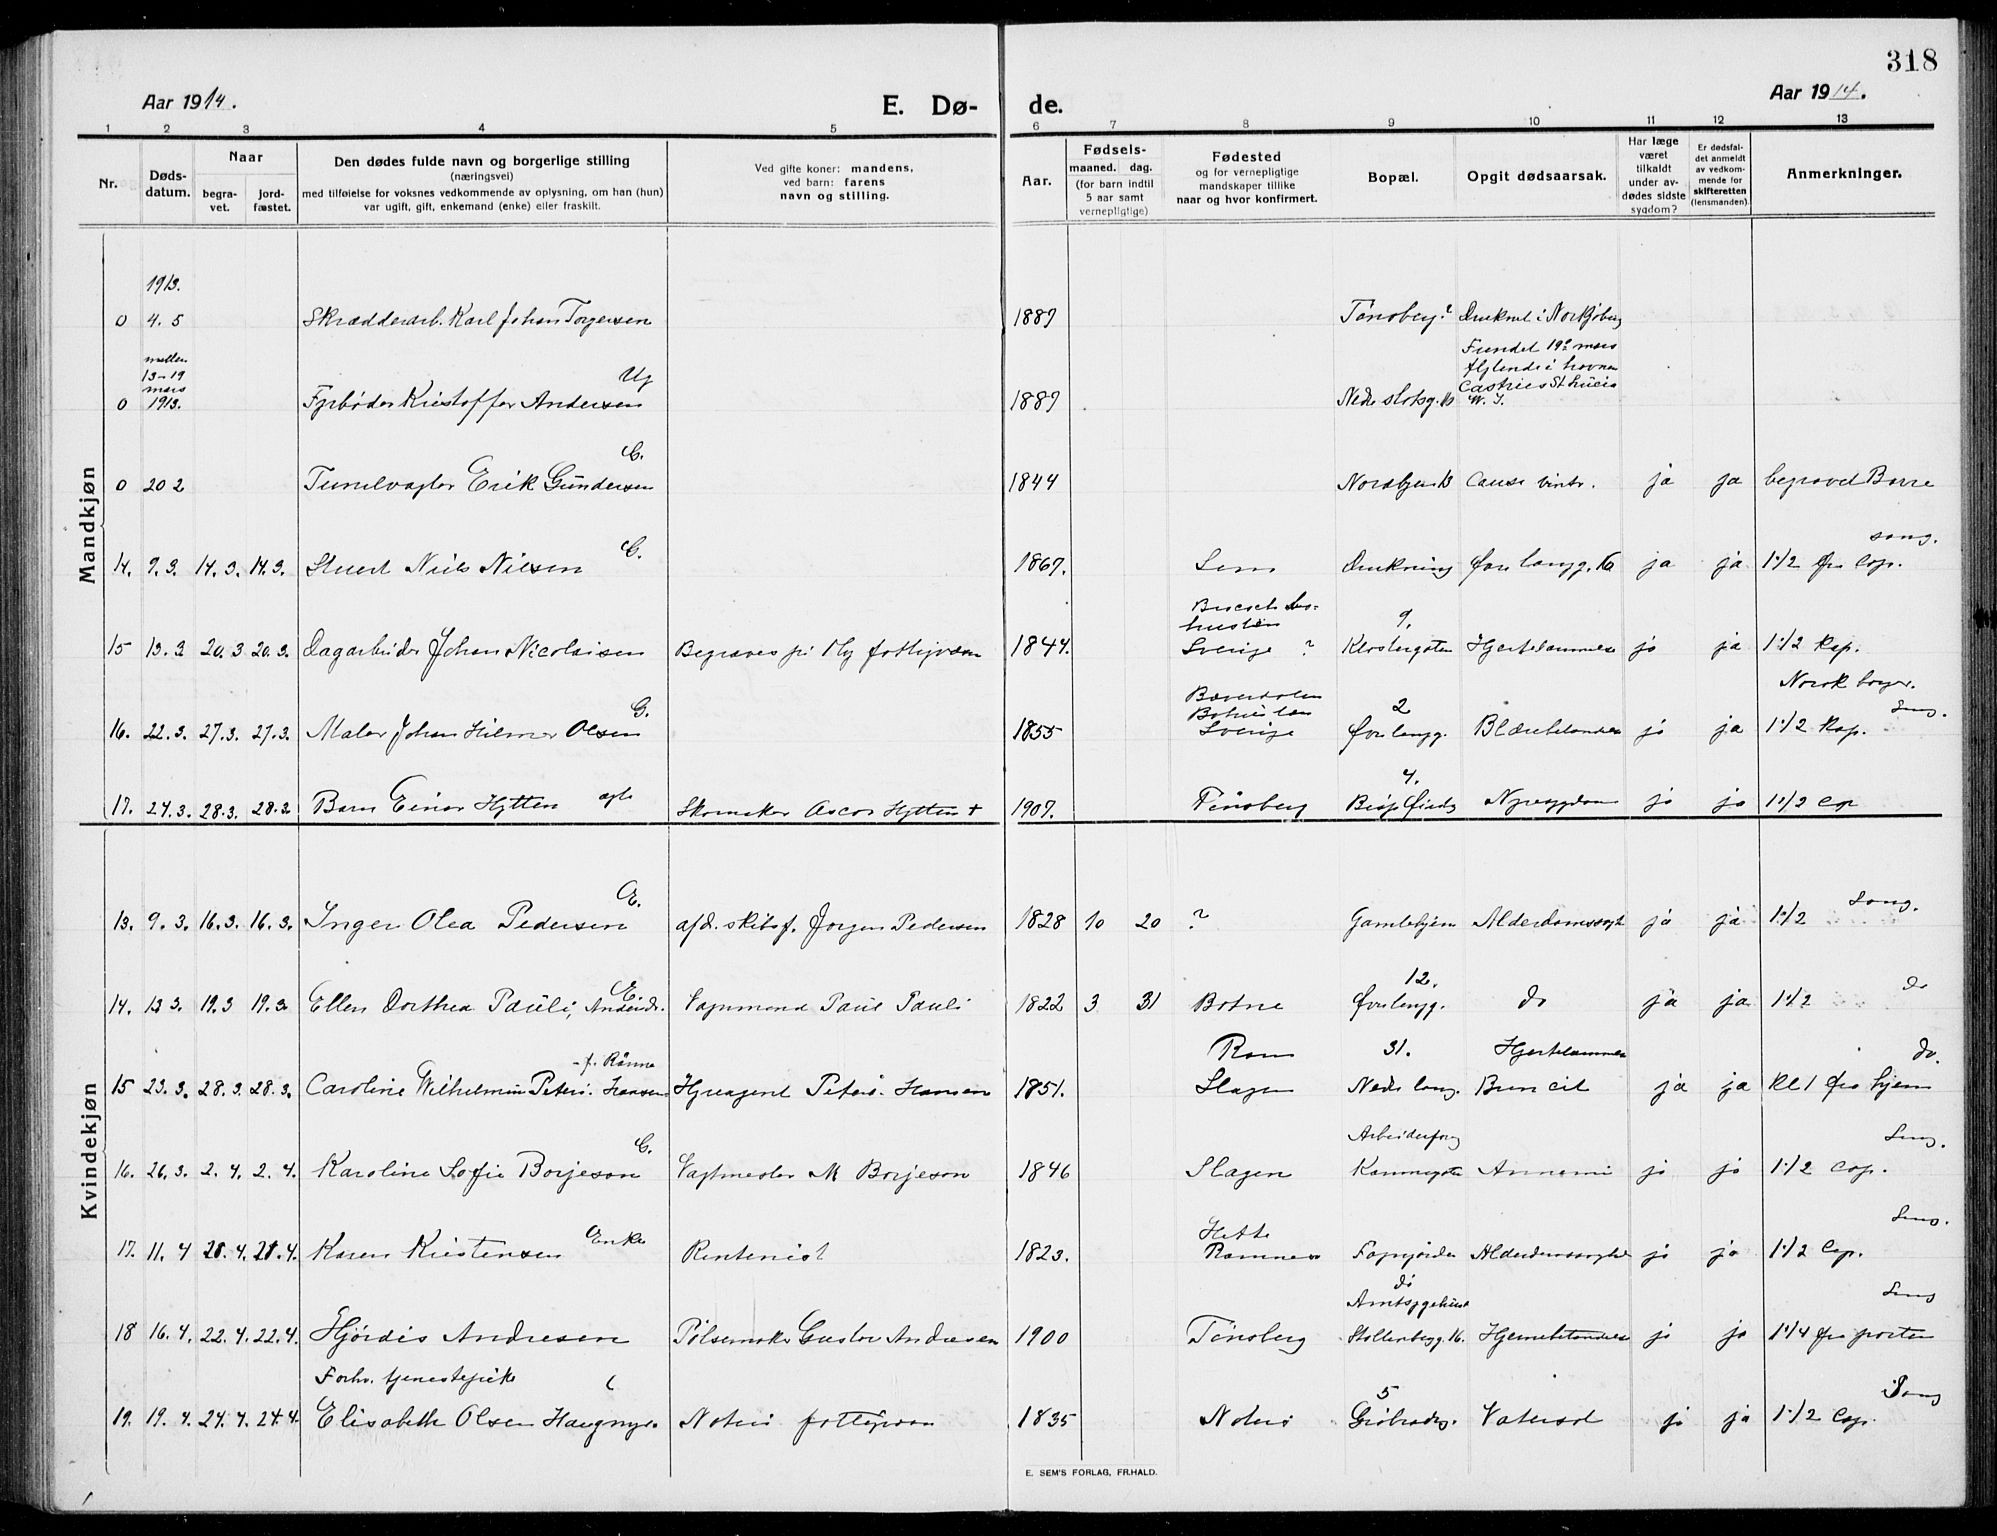 318
Aar 1914.
E. Dø-
de.
Aar 1914.
1 2 3 4 5 6 7 8 9 10 11 12 13
Nr.
Døds-
datum.
Naar
begra-
vet.
jord-
fæstet.
Den dødes fulde navn og borgerlige stilling
(næringsvei)
med tilføielse for voksnes vedkommende av oplysning, om han (hun)
var ugift, gift, enkemand (enke) eller fraskilt.
Ved gifte koner: mandens,
ved barn: farens
navn og stilling.
Aar.
Fødsels-
maaned. dag.
(for barn indtil
5 aar samt
vernepligtige)
Fødested
og for vernepligtige
mandskaper tillike
naar og hvor konfirmert.
Bopæl.
Opgit dødsaarsak.
Har læge
været
tilkaldt
under av-
dødes sidste
sygdom?
Er dødsfal-
det anmeldt
av vedkom-
mende for
skifteretten
(lensmanden).
Anmerkninger.
Mandkjøn
1913.
0 4. 5 Skrædderarb. Karl Johan Torgersen 1889 Tønsberg? Druknet i
mellem
13-19
mars
Ug
Fundet 19e mars
flytende i havnen
Castries St. Lucia
0 1913. Fyrbøder Kristoffer Andersen 1889 W. I.
G.
0 20 2 Erik Gundersen 1844 ja ja begravet Borre
G. sang.
14. 9. 3. 14. 3. 14. 3. Stuert Niels Nilsen 1867. Sem Drukning Øvre langg. ja ja 1 1/2 fra Cap.
9.
15 13. 3 20. 3 20. 3. Dagarbeider Johan Nicolaisen Begraves på fattigvæsen 1844. Sverige ? Klostergaten ja ja 1 1/2 Kap.
Norsk borger.
G. 2
16. 22. 3. 27. 3. 27. 3. Maler Johan Hilmer Olsen 1855 Sverige Øvre langg. ja ja 1 1/2 Kap.
4.
17. 24. 3. 28. 3. 28. 3 Barn Einar Hytten ægte Skomaker Oscar Hytten + 1907. Tønsberg Nyresygdom ja ja 1 1/2 Cap
Kvindekjøn
E. Sang.
13. 9. 3. 16. 3. 16. 3. Inger Olea Pedersen afd. skibsf. Jørgen Pedersen 1828 10 20 ? Gamlehjem ja ja 1 1/2
E. 12. do
14. 13 3. 19. 3 19. 3 Ellen Dorthea Pauli, Vognmand Paul Pauli 1822 3 31 Botne Øvre langg. do ja ja 1 1/2
31. do.
15 23. 3. 28. 3. 28. 3. Caroline Wilhelmine Peters. Hansen Peters. Hansen 1851. Slagen Nedre lang. ja ja Kl 1 fra hjem
G. Sang.
16. 26. 3. 2. 4. 2. 4. Karoline Sofie Borjeson Vagtmester M Borjeson 1846 Slagen ja ja 1 1/2 Cap.
Enke Sang.
17. 11. 4 21. 4. 21. 4. Karen Kristensen Rentenist 1823. Ramnes ja ja 1 1/2 Cap.
do
Amtssygehuset
Sang
18 16. 4. 22. 4. 22. 4. Hjørdis Andresen Pølsemaker Gustav Andresen 1900 Tønsberg Stoltenbergg. 16. ja ja 1 1/4 fra porten
Forhv. tjenestepike
5 Sang
19. 19. 4. 24. 4. 24. 4. Elisabeth Olsen 1835 ja ja 1 1/2 Cap.
E. SEM'S FORLAG, FR.HALD.